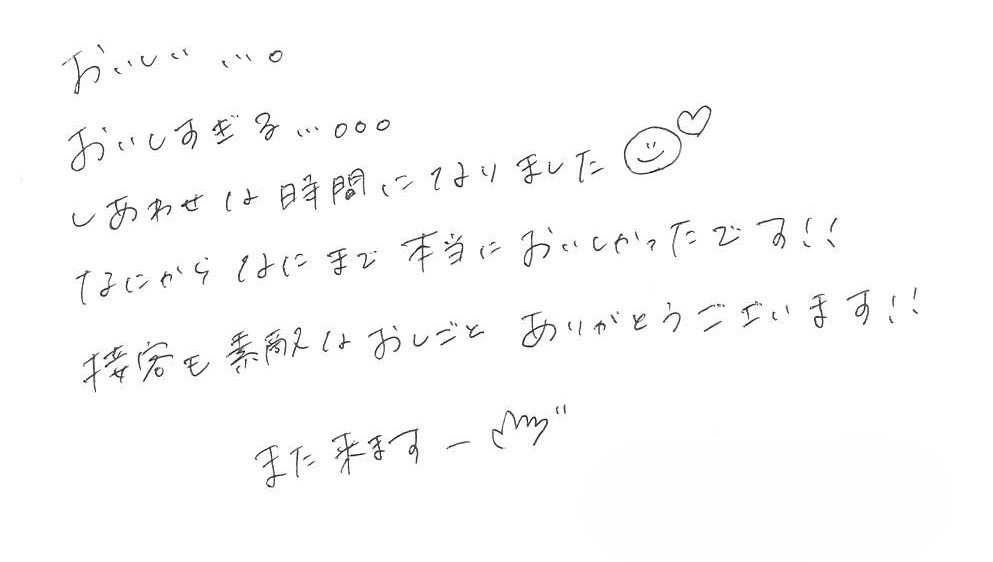 おいしい…。
おいしすぎる…。。。
しあわせな時間になりました
なにからなにまで本当においしかったです!!
接客も素敵なおしごとありがとうございます!!
また来ますー